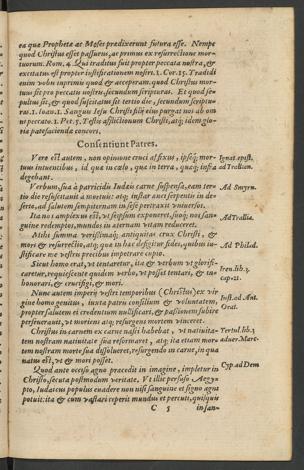 ea quæ Prophetæ ac Moses prædixerunt futura esse. Nempe
quod Christus esset passurus, ac primus ex resurrectione mor-
tuorum. Rom. 4. Qui traditus fuit propter peccata nostra, &
excitatus est propter iustificationem nostri. 1. Cor. 15. Tradidi
enim vobis inprimis quod & acceperam, quod Christus mor-
tuus sit pro peccatis nostris, secundum scripturas. Et quod se-
pultus sit, & quod suscitatus sit tertio die, secundum scriptu-
ras. 1. Ioan. 1. Sanguis Iesu Christi filij eius purgat nos ab om
ni peccato. 1. Pet. 5. Testis afflictionum Christi, atq; idem glo-
riæ patefaciendæ consors.
Consentiunt Patres.
Vere est autem, non opinione cruci affixus, ipseq; mor-
tuus intuentibus, id qua in cœlo, qua in terra, quaq; infra
degebant.
Ignat. epist.
ad Trallian.
Verbum, sua à parricidis Iudæis carne suspensa, eam ter-
tio die resuscitauit à mortuis: atq; instar ænei serpentis in de-
serto, ad salutem sempiternam in sese pertraxit vniuersos.
Ad Smyrn.
Ita nos amplexus est, vt seipsum exponeret, suoq; nos san-
guine redemptos, mundes in æternam vitam reduceret.
Ad Trallia.
Mihi summa verissimaq; antiquitas crux Christi, &
mors & resurrectio, atq; quæ in hac desigitur fides, quibus iu-
stificare me vestris precibus impetrare cupio.
Ad Philad.
Sicut homo erat, vt tentaretur, ita & verbum vt glorifi-
caretur, requiescente quidem verbo, vt posset tentari, & in-
honorari, & crucifigi, & mori.
Iren. lib. 3.
cap. 21.
Nunc autem imperij vestri temporibus (Christus) ex vir
gine homo genitus, iuxta patris consilium & voluntatem,
propter salutem ei credentium nullificari, & passionem subire
perseuerauit, vt moriens atq; resurgens mortem vinceret.
Iust. ad Ant.
Orat.
Christus in carnem ex carne nasci habebat, vt natiuita-
tem nostram natiuitate sua reformaret, atq; ita etiam mor-
tem nostram morte sua dissolueret, resurgendo in carne, in qua
natus est, vt & mori posset.
Tertul. lib. 3
aduer. Marc.
Quod ante occiso agno præcedit in imagine, impletur in
Christo, secuta postmodum veritate. Vt illic percusso Aegy-
pto, Iudæus populus euadere non nisi sanguine et signo agni
potuit: ita & cum vastari ceperit mundus et percuti, quisquis
Cyp. ad Dem
C 5
in san-